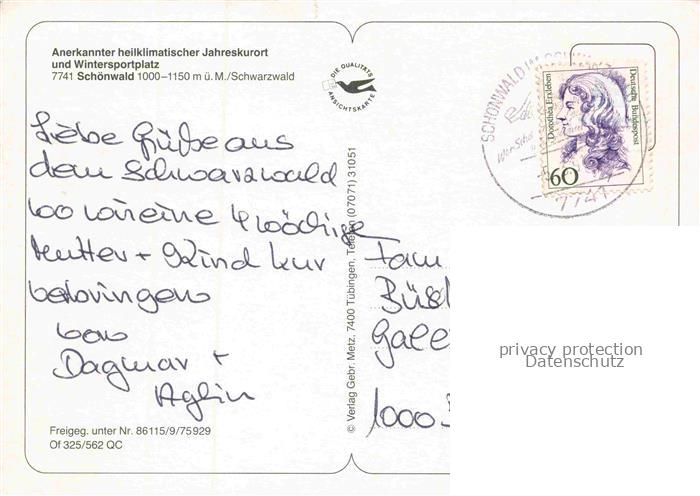 Anerkannter heilklimatischer Jahreskurort
und Wintersportplatz
7741 Schönwald 1000–1150 m ü. M./Schwarzwald
DIE QUALITÄTS
ANSICHTSKARTE
SCHÖNWALD IM
7741
Dorothea Erxleben
Deutsche Bundespost
60
Liebe Grüße aus
dem Schwarzwald
wo wir eine 4 wöchige
Mutter + Kind kur
verbringen
von
Dagmar +
© Verlag Gebr. Metz, 7400 Tübingen, Telefon (07071) 31051
Fam
1000
privacy protection
Datenschutz
Freigeg. unter Nr. 86115/9/75929
Of 325/562 QC